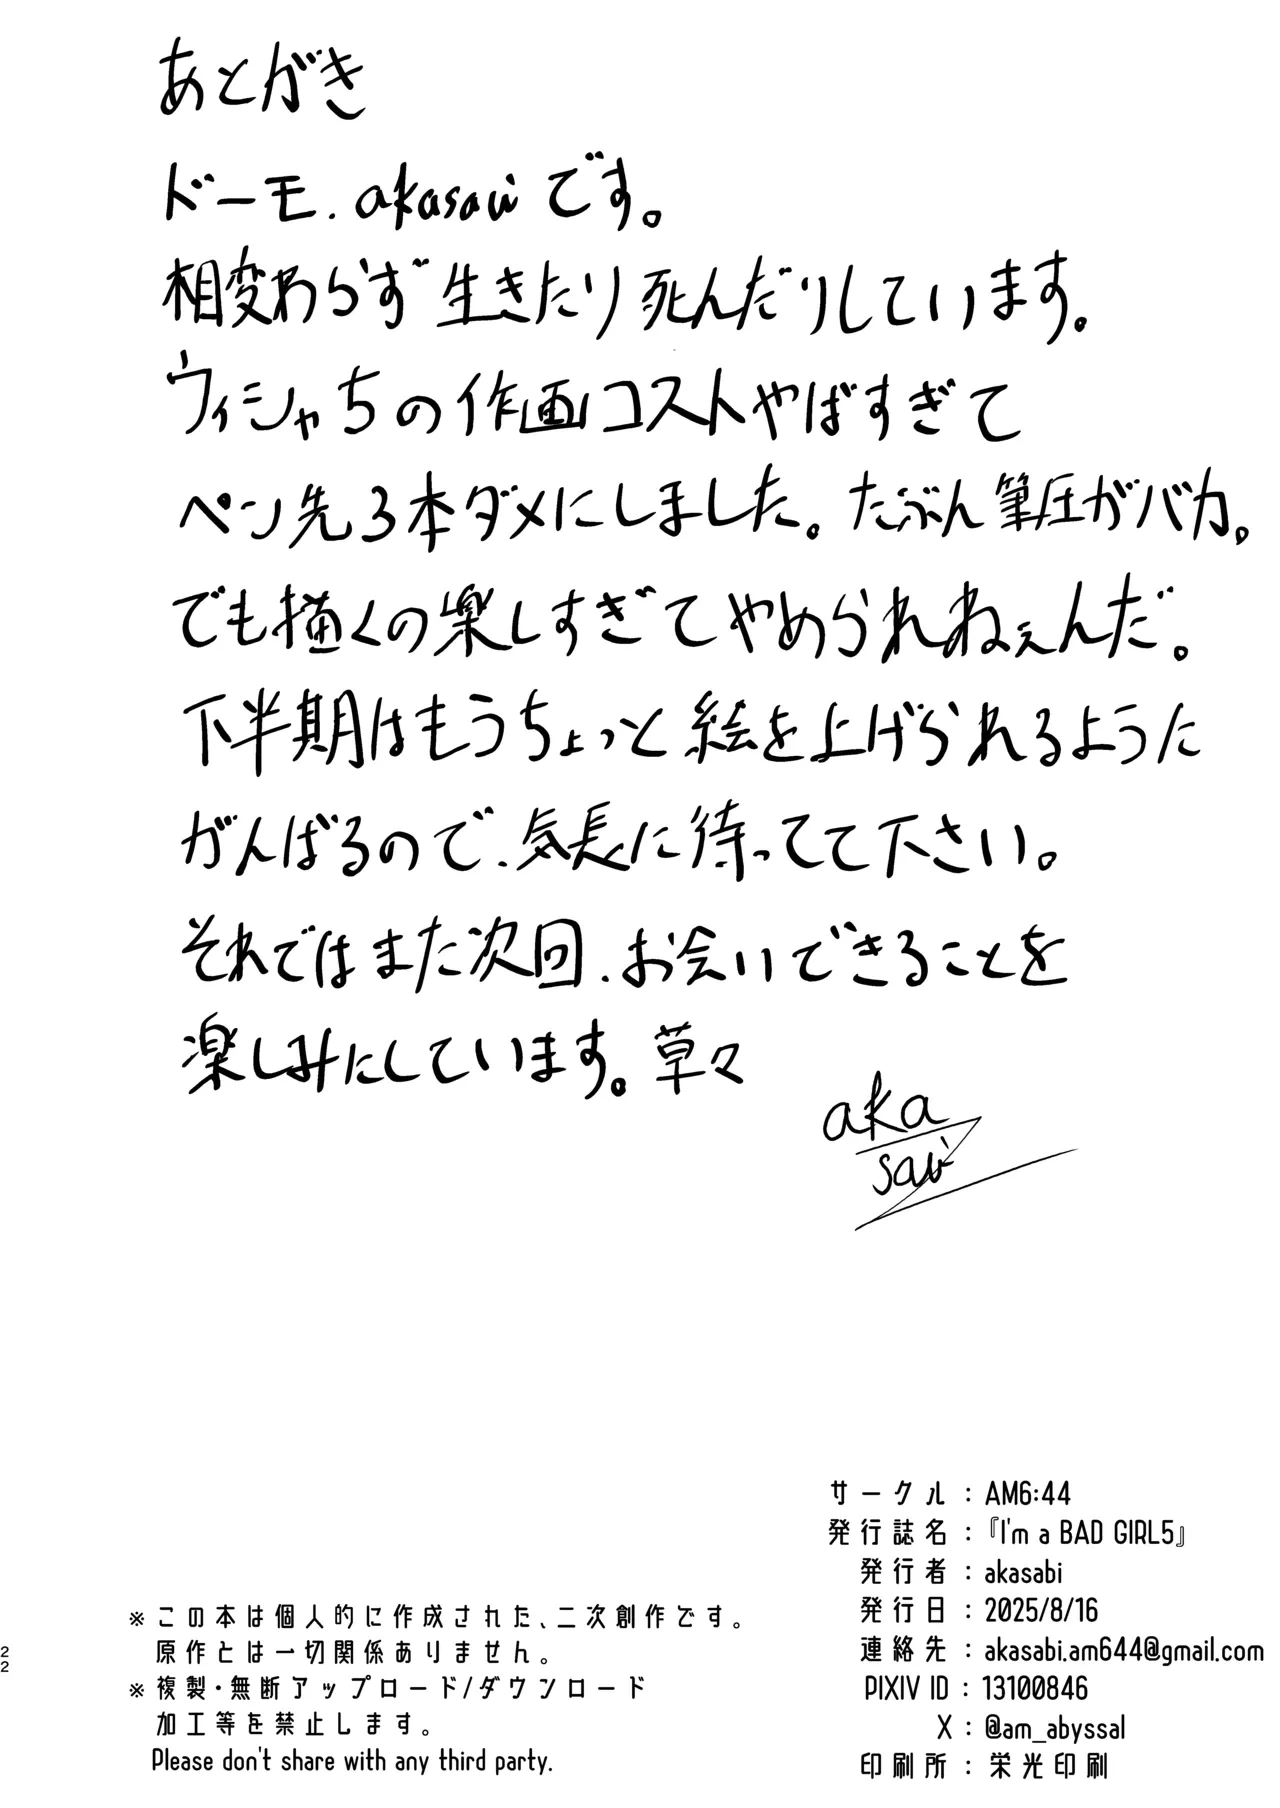 あとがき
ドーモ.akasabiです。
相変わらず生きたり死んだりしています。
ウィシャちの作画コストやばすぎて
ペン先3本ダメにしました。たぶん筆圧がバカ。
でも描くの楽しすぎてやめられねぇんだ。
下半期はもうちょっと絵を上げられるようた
がんばるので、気長に待ってて下さい。
それではまた次回、お会いできることを
楽しみにしています。草々
aka
sabi
サークル：AM6:44
発行誌名：『I'm a BAD GIRL5』
発行者：akasabi
発行日：2025/8/16
連絡先：akasabi.am644@gmail.com
PIXIV ID：13100846
X：@am_abyssal
印刷所：栄光印刷
※この本は個人的に作成された、二次創作です。
原作とは一切関係ありません。
※複製・無断アップロード/ダウンロード
加工等を禁止します。
Please don't share with any third party.
22